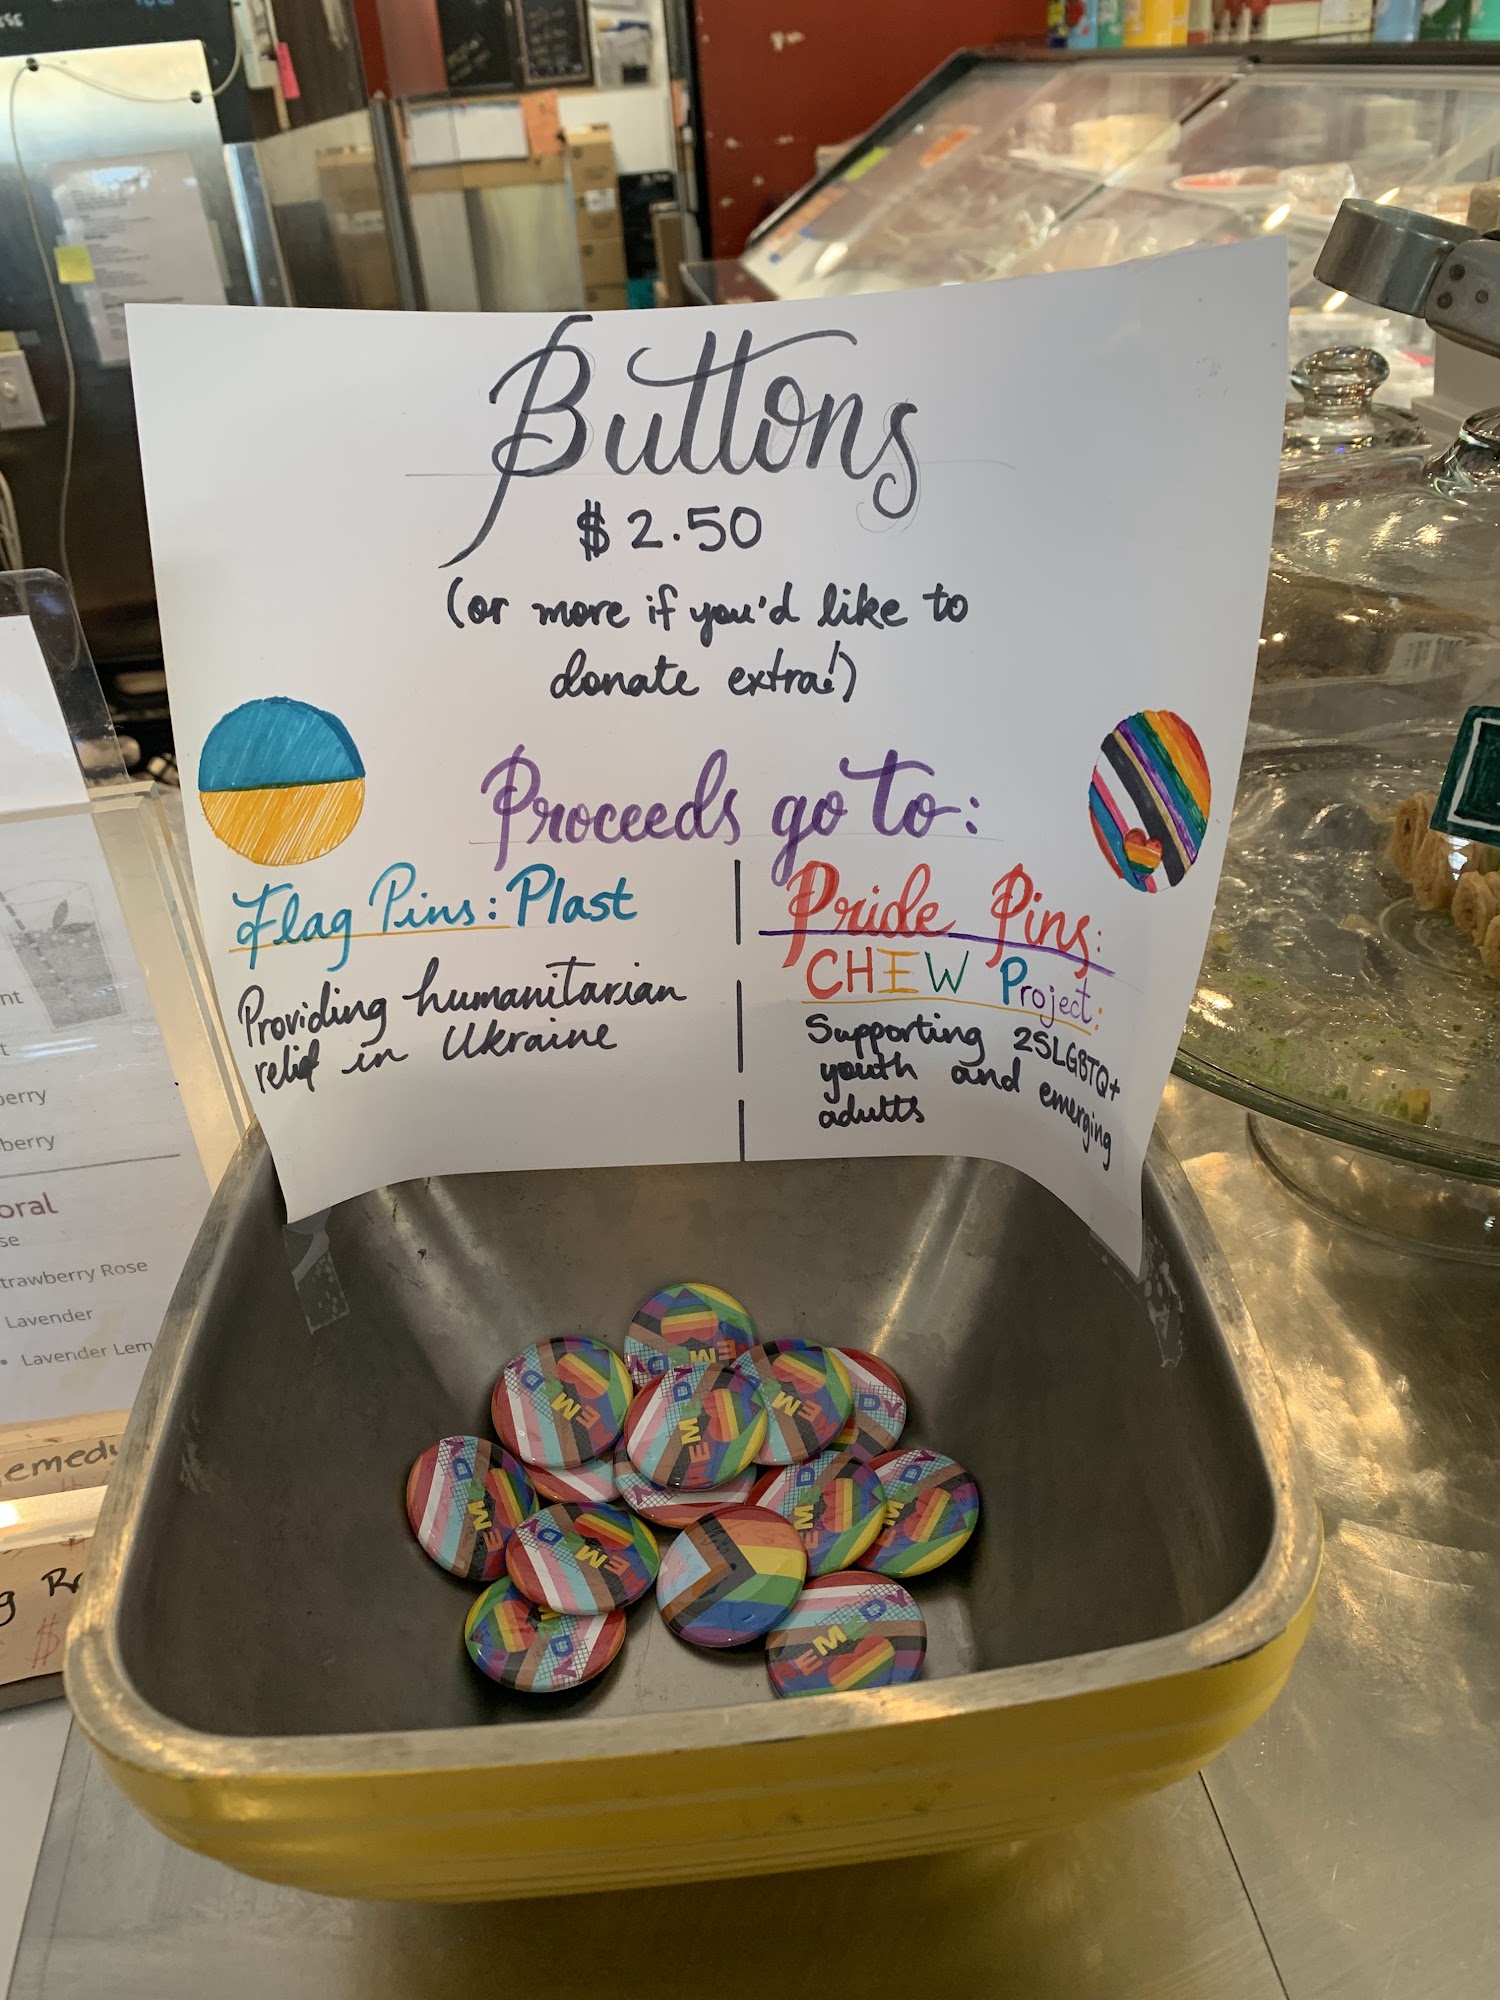 Buttons
$2.50
(or more if you'd like to
donate extra!)
Proceeds go to:
Flag Pins: Plast
Providing humanitarian
relief in Ukraine
Pride Pins:
CHEW Project:
Supporting 2SLGBTQ+
youth and emerging
adults
berry
berry
oral
se
trawberry Rose
Lavender
• Lavender Lem
emedy
EMEDY